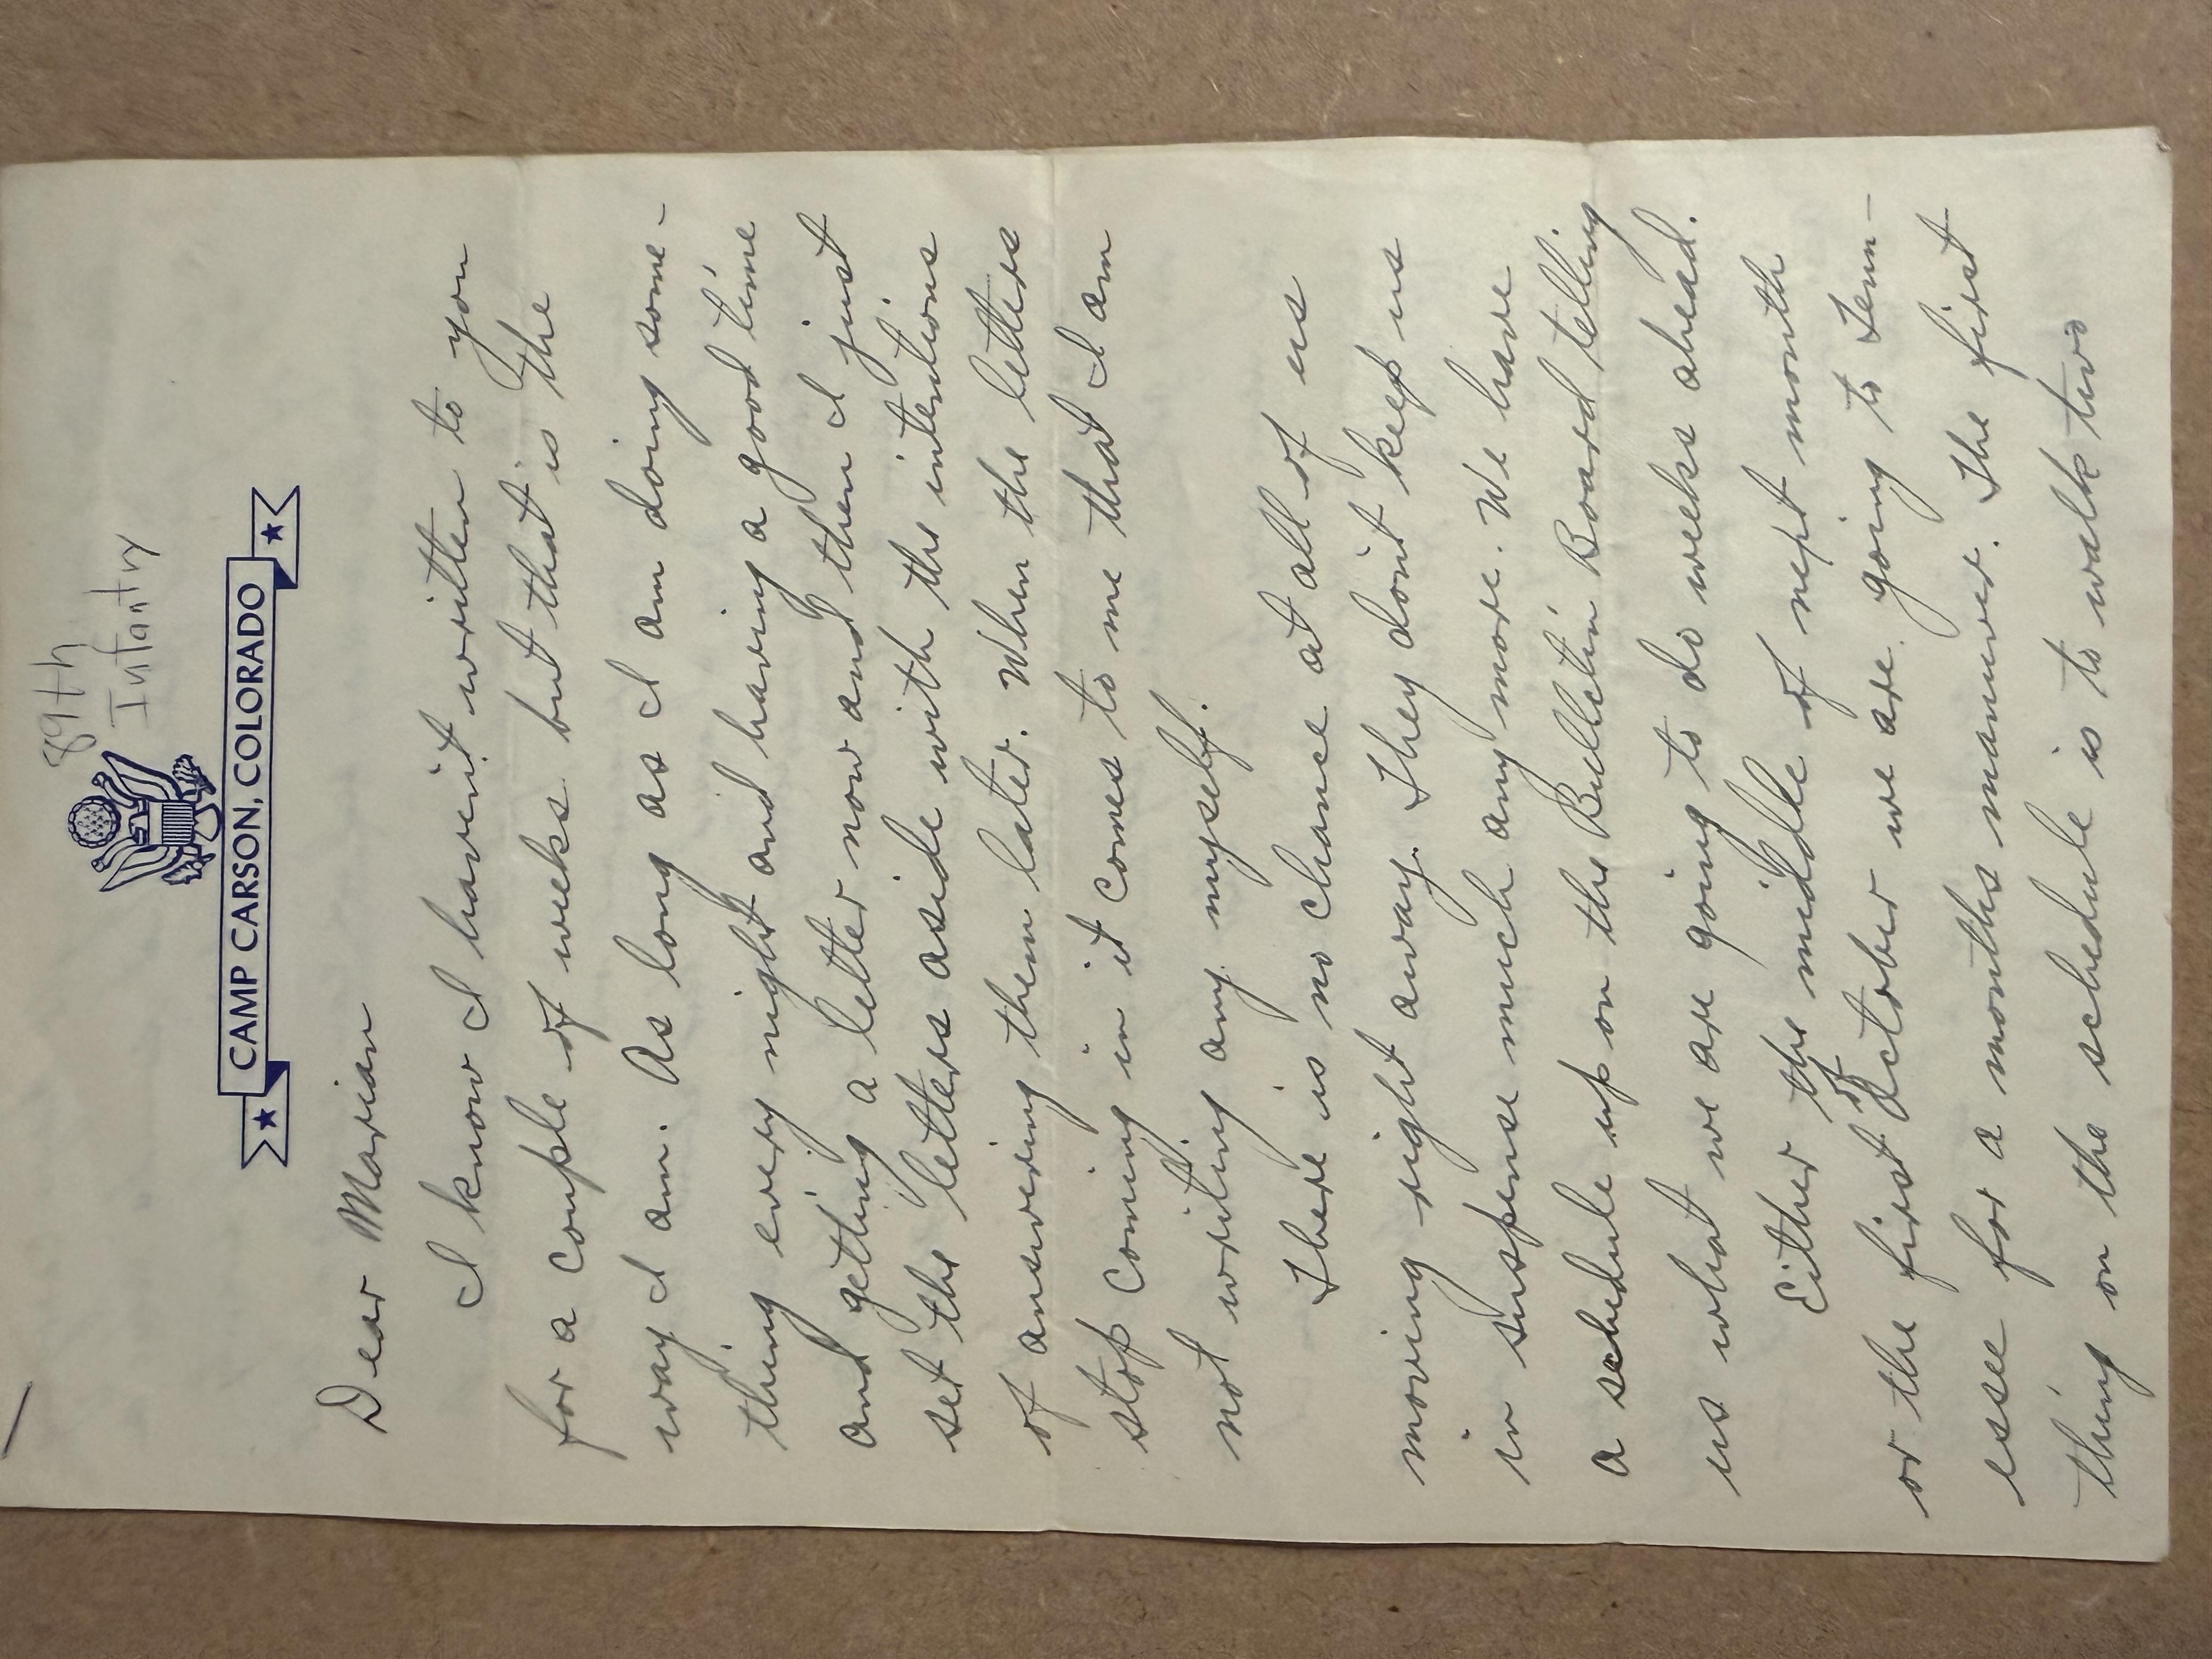 89th
Infantry
CAMP CARSON, COLORADO
Dear Marian
I know I havent written to you
for a couple of weeks but that is the
way I am. As long as I am doing some-
thing every night and having a good time
and getting a letter now and then I just
set the letters aside with the intentions
of answering them later. When the letters
stop coming in it comes to me that I am
not writing any myself.
There is no chance at all of us
moving right away. They don't keep us
in suspense much any more. We have
a schedule up on the Bulletin Board telling
us what we are going to do weeks ahead.
Either the middle of next month
or the first of October we are going to Tenn-
essee for a months manuver. The first
thing on the schedule is to walk two